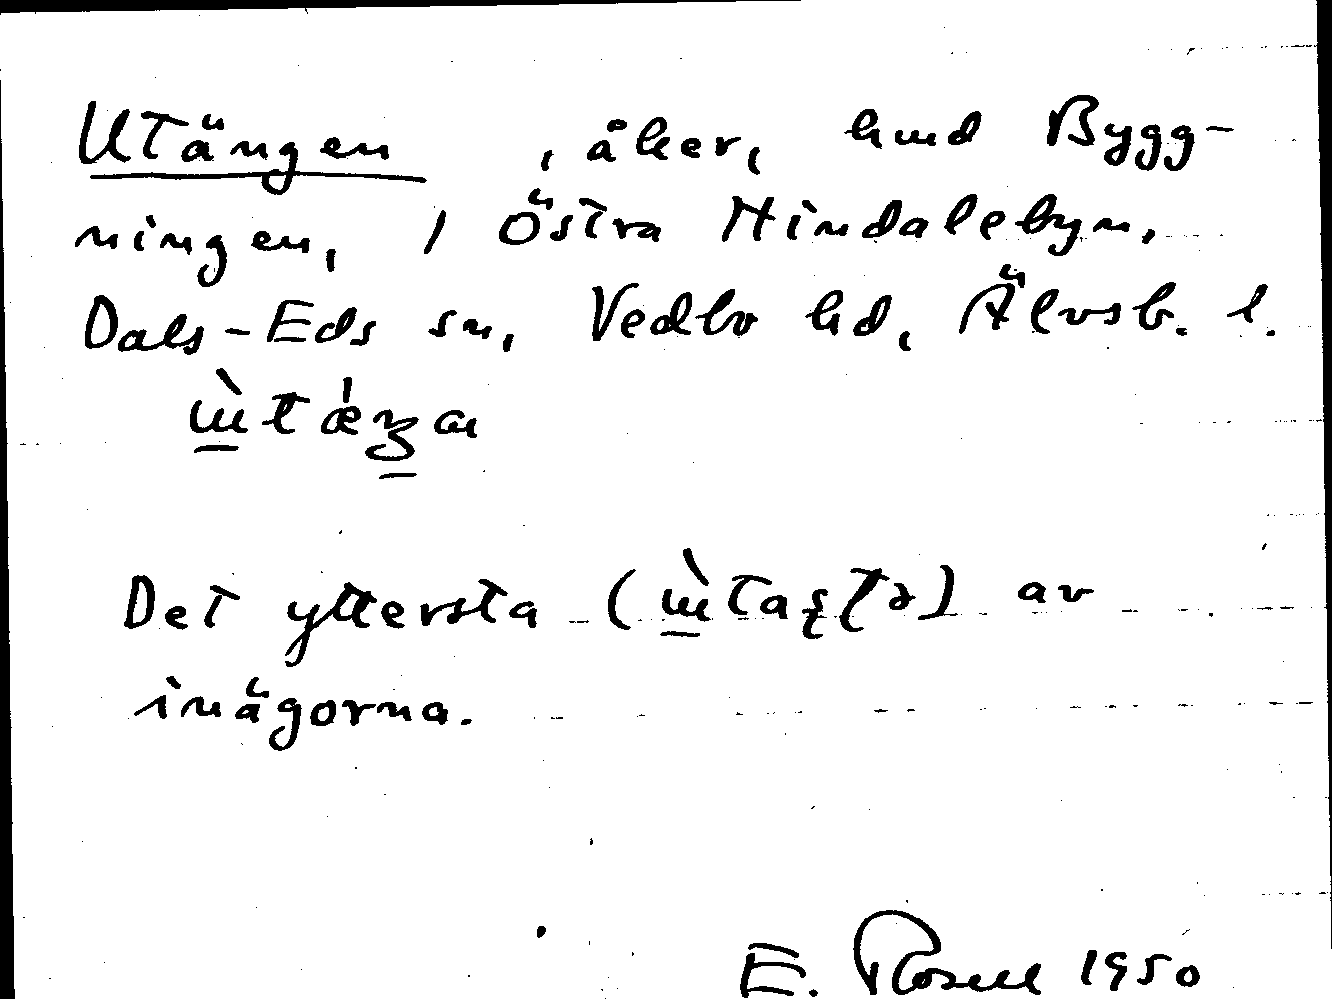 Utängen, åker, hmd Bygg-
ningen, i Östra Hindalebyn,
Dals-Eds sn, Vedbo hd, Älvsb. l.
Det yttersta av
inägorna.
E. Rosell 1950